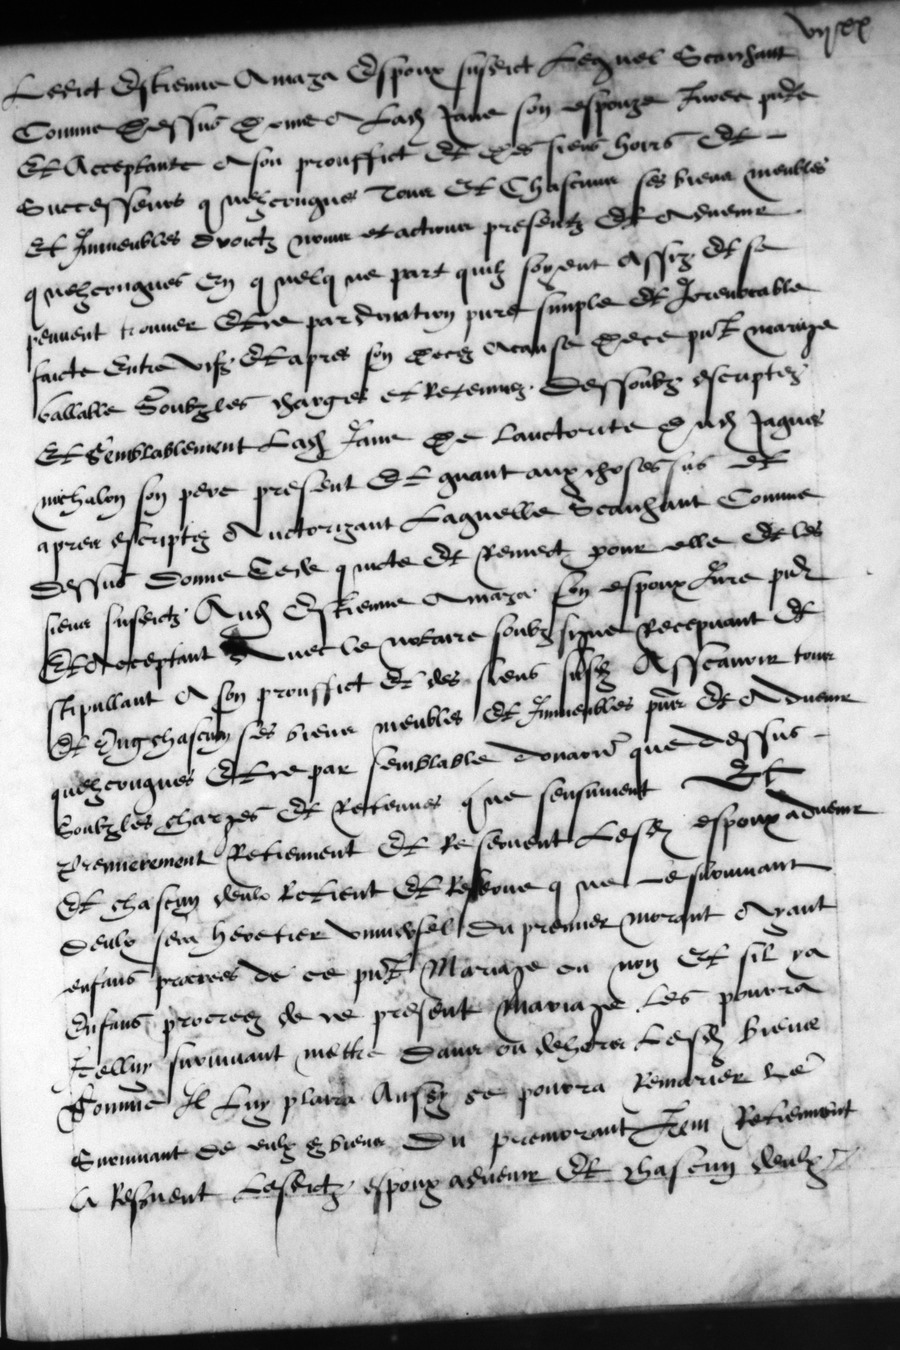 vijxx
Ledict Estienne Amaza Espoux susdict Lequel Scachant
Comme dessus donne A Lad Jane son espouze
Et Acceptante A son prouffict Et des siens hoirs Et
Successeurs quelzconques Tous Et Chascuns ses biens meubles
Et Immeubles droictz noms et actions presentz Et Advenir
quelzconques En quelque part quilz soyent Assiz Et se
peuvent trouver Et ce par donation pure simple Et Irrevocable
faicte Entre vifz Et apres son deces A cause de ce pnt mariaje
vallable Soubz les charges et Retenues dessoubz escriptes
Et Semblablement Lad Jane de Lauctorite dud Jaques
michalon son pere present Et quant aux choses sus Et
apres escriptes Auctorizant Laquelle Scachant Comme
dessus donne Cede quicte Et Remect pour elle Et les
siens susdictz Aud Estienne Amaza son espoux
Et Acceptant Avec le notaire soubzsigne Recepvant Et
stipullant A son prouffict Et des siens susd Asscavoir tous
Et Ung chascun ses biens meubles Et Immeubles pns Et Advenir
quelzconques Et ce par semblable que dessus
Soubz les charges Et Retenues que sensuivent Et
Premierement Retiennent Et Reservent Lesd espoux advenir
Et chascun deulx Retient Et Reserve que Le survivant
deulx sera heretier universel du premier morant Ayant
enfans procrees de ce pnt Mariaje ou non Et sil ya
Enfans procreez de ce present Mariaje Les pourra
Icelluy survivant mettre dans ou dehors Lesd biens
Comme Il Luy plaira Aussy se pourra Remarier Le
Survivant de eulx biens du premorant Item Retiennent
Reservent Lesdictz espoux advenir Et chascun deulx